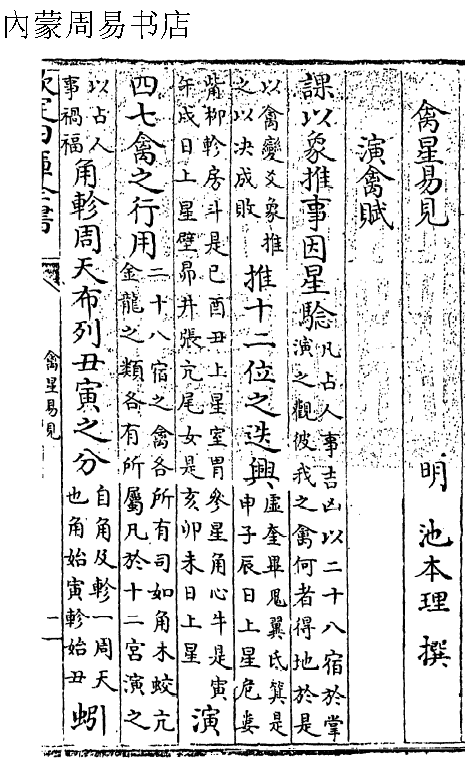 內蒙周易书店
禽星易見 明 池本理 撰
演禽賦
課以象推事因星驗
凡占人事吉凶以二十八宿於掌
演之觀彼我之禽何者得地於是
以禽變爻象推
之以决成敗
推十二位之迭興
虛奎畢鬼翼氐箕是
申子辰日上星危婁
觜柳軫房斗是巳酉丑上星室胃參星角心牛是寅
午戌日上星壁昴井張亢尾女是亥卯未日上星
演
四七禽之行用
二十八宿之禽各所有司如角木蛟亢
金龍之類各有所屬凡於十二宮演之
以占人
事禍福
角軫周天布列丑寅之分
自角及軫一周天
也角始寅軫始丑
蚓
欽定四庫全書
禽星易見